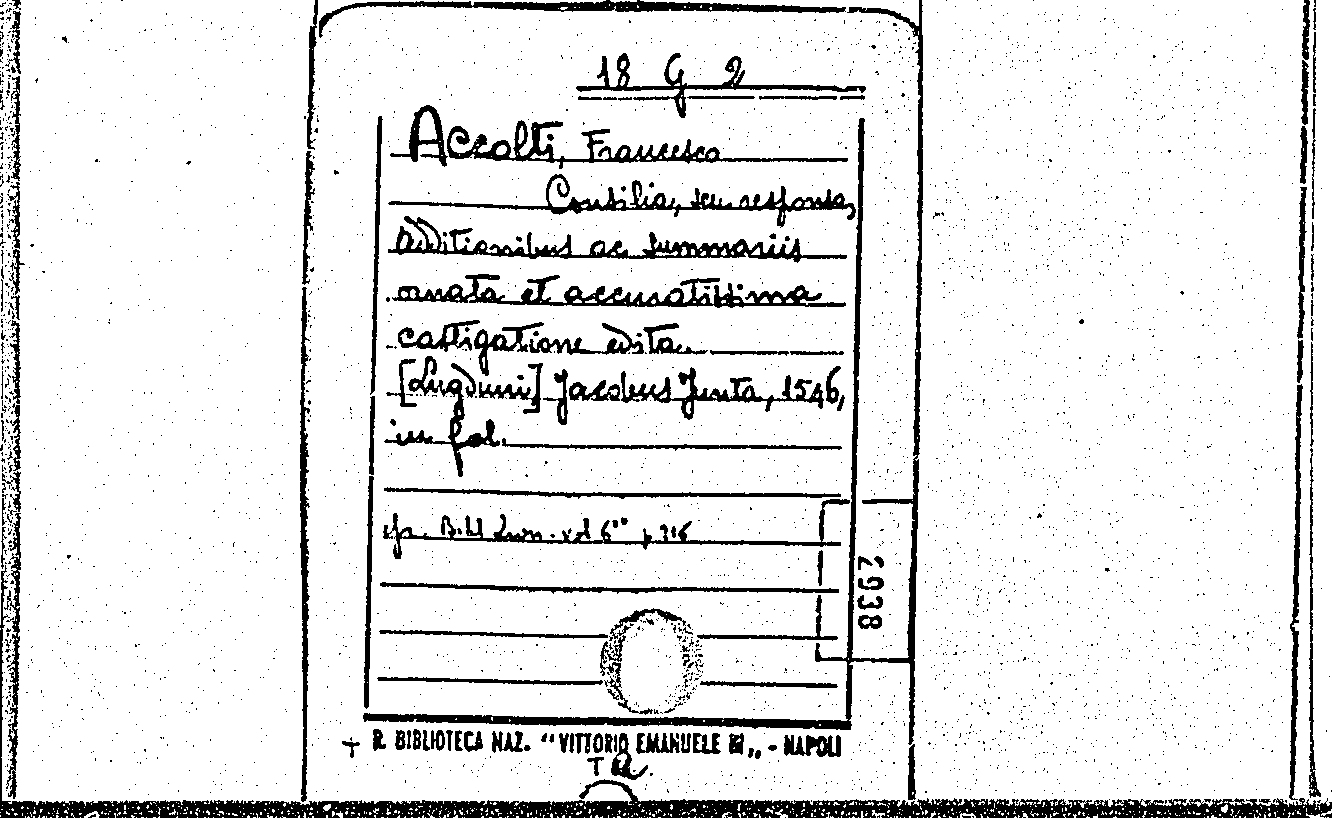 18 G 2
Accolti, Francesco
Consilia, seu responsa,
additionibus ac summariis
ornata et accuratissima
castigatione edita.
[Lugduni] Jacobus Junta, 1546,
in fol.
vol 6° p. 316
2938
R. BIBLIOTECA NAZ. "VITTORIO EMANUELE III„ - NAPOLI